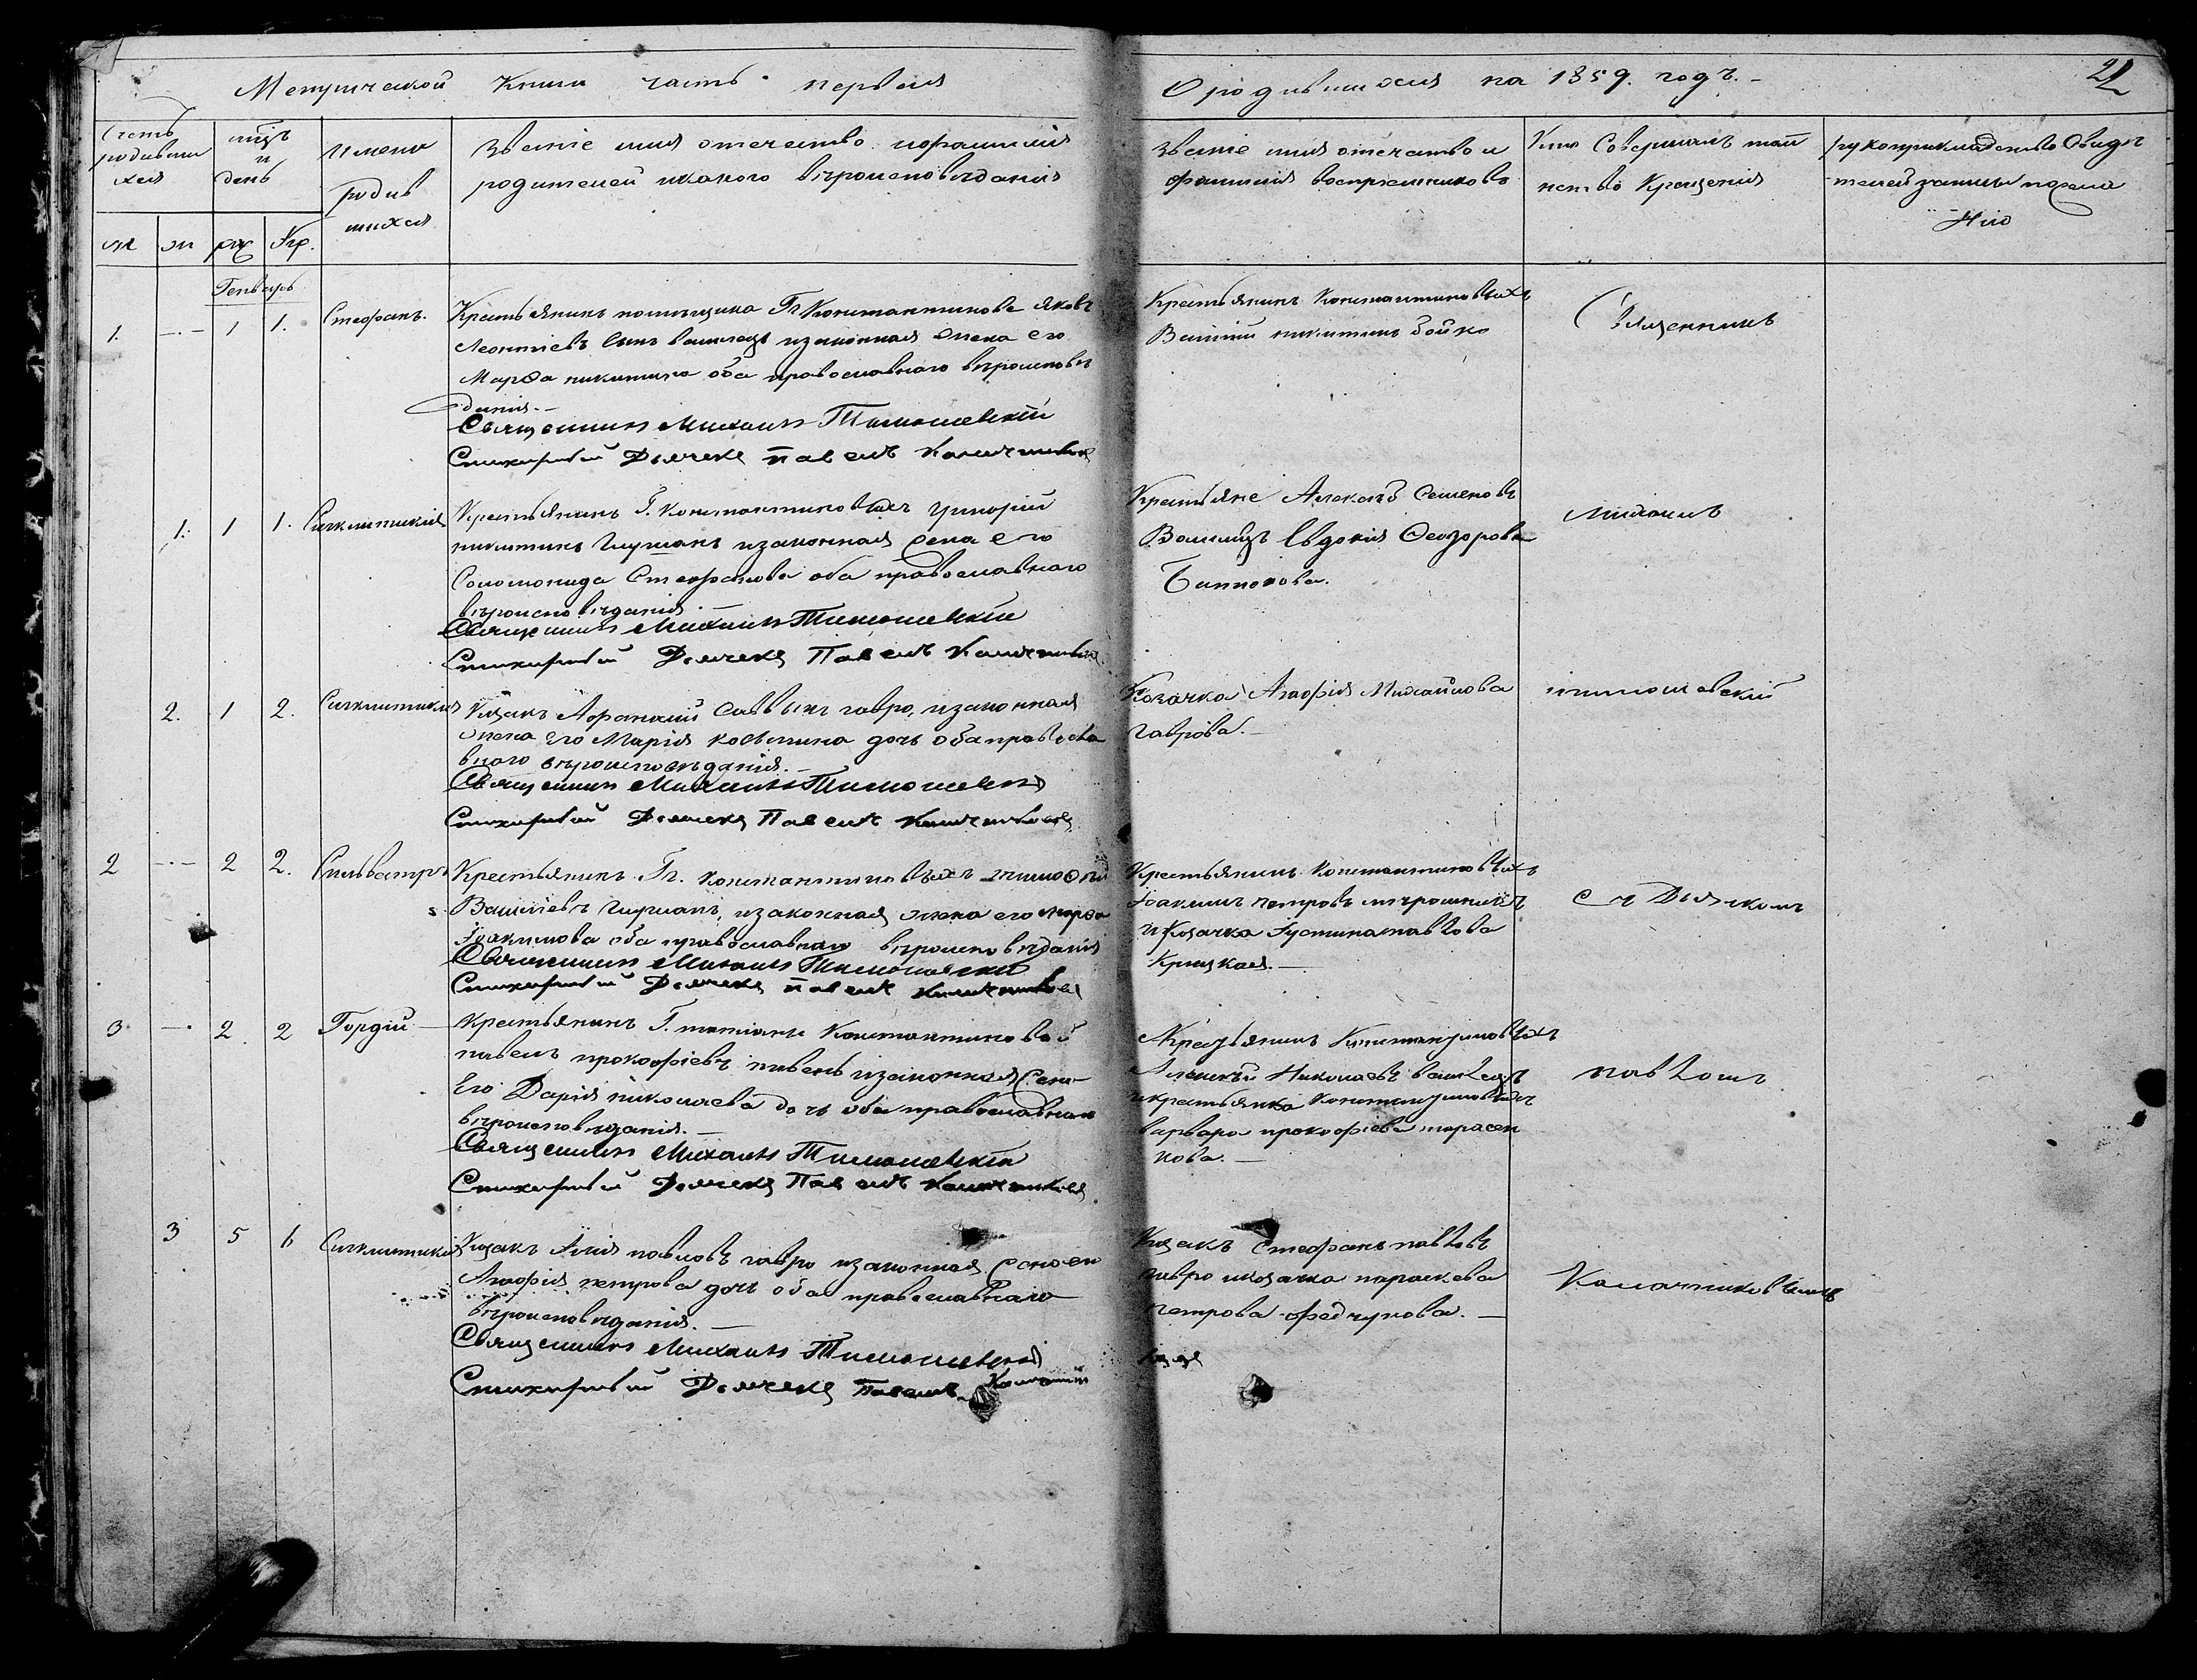 Метрической Книги часть первая
О родившихся на 1859. годъ.
22
Счетъ родивши хся
мцъ и день
Имена родив шихся
Званіе имя отечество ифамилія
родителей икакого вѣроисповѣданія
Званіе имя отечество и
фамилія воспреемниковъ
Кто Совершалъ таи
нство Крещенія
рукоприкладство Свидѣ
телей записи пожела
нію
м ж рж Кр.
Генварь
1. 1 1. Стефанъ.
Крестьянинъ помѣщика Гг Константинова Яковъ
Леонтіевъ Сынъ изаконная Жена его
Марфа никитина оба православнаго вѣроисповѣ
данія.
Священникъ Михаилъ Тимошевскій
Стихарный Дьячекъ Павелъ Калачниковъ
Крестьянинъ Константиновыхъ
Василій никитинъ бойко
Священникъ
1. 1 1. Сигклитикія
Крестьянинъ Г. Константиновыхъ григорій
никитинъ изаконная Жена его
Соломонида Стефанова оба православнаго
вѣроисповѣданія
Священникъ Михаилъ Тимошевскій
Стихарный Дьячекъ Павелъ Калачниковъ
Крестьяне Алексѣй Семеновъ
Евдокія Феодорова
Михаилъ
2. 1 2. Сигклитикія
Козакъ Афанасій Саввинъ гавро, изаконная
жена его Марія косьмина дочь оба правосла
внаго вѣроисповѣданія.
Священникъ Михаилъ Тимошевскій
Стихарный Дьячекъ Павелъ Калачниковъ
Козачка Агафія Михайлова
гаврова.
тимошевскій
2 2 2. Сильвестръ
Крестьянинъ Гг. Константиновыхъ тимофей
Василіевъ изаконная жена его марфа
Іоакимова оба православнаго вѣроисповѣданія
Священникъ Михаилъ Тимошевскій
Стихарный Дьячекъ Павелъ Калачниковъ
Крестьянинъ Константиновыхъ
Іоакимъ петровъ
и Козачка Іустина павлова
Крицкая.
съ Дьячкомъ
3 2. 2 Гордій
Крестьянинъ Г. татіаны Константиновой
павелъ прокофіевъ пивень изаконная Жена
Его Дарія николаева дочь оба православнаго
вѣроисповѣданія.
Священникъ Михаилъ Тимошевскій
Стихарный Дьячекъ Павелъ Калачниковъ
Крестьянинъ Константиновыхъ
Алексѣй Николаевъ
икрестьянка Константиновыхъ
варвара прокофіева тарасен
кова.
павломъ
3 5 6 Сигклитикія
Козакъ Илія павловъ гавро изаконная жена его
Агафія петрова дочь оба православнаго
вѣроисповѣданія.
Священникъ Михаилъ Тимошевскій
Стихарный Дьячекъ Павелъ
Козакъ Стефанъ павловъ
гавро икозачка параскева
петрова федчунова.
Калачниковымъ